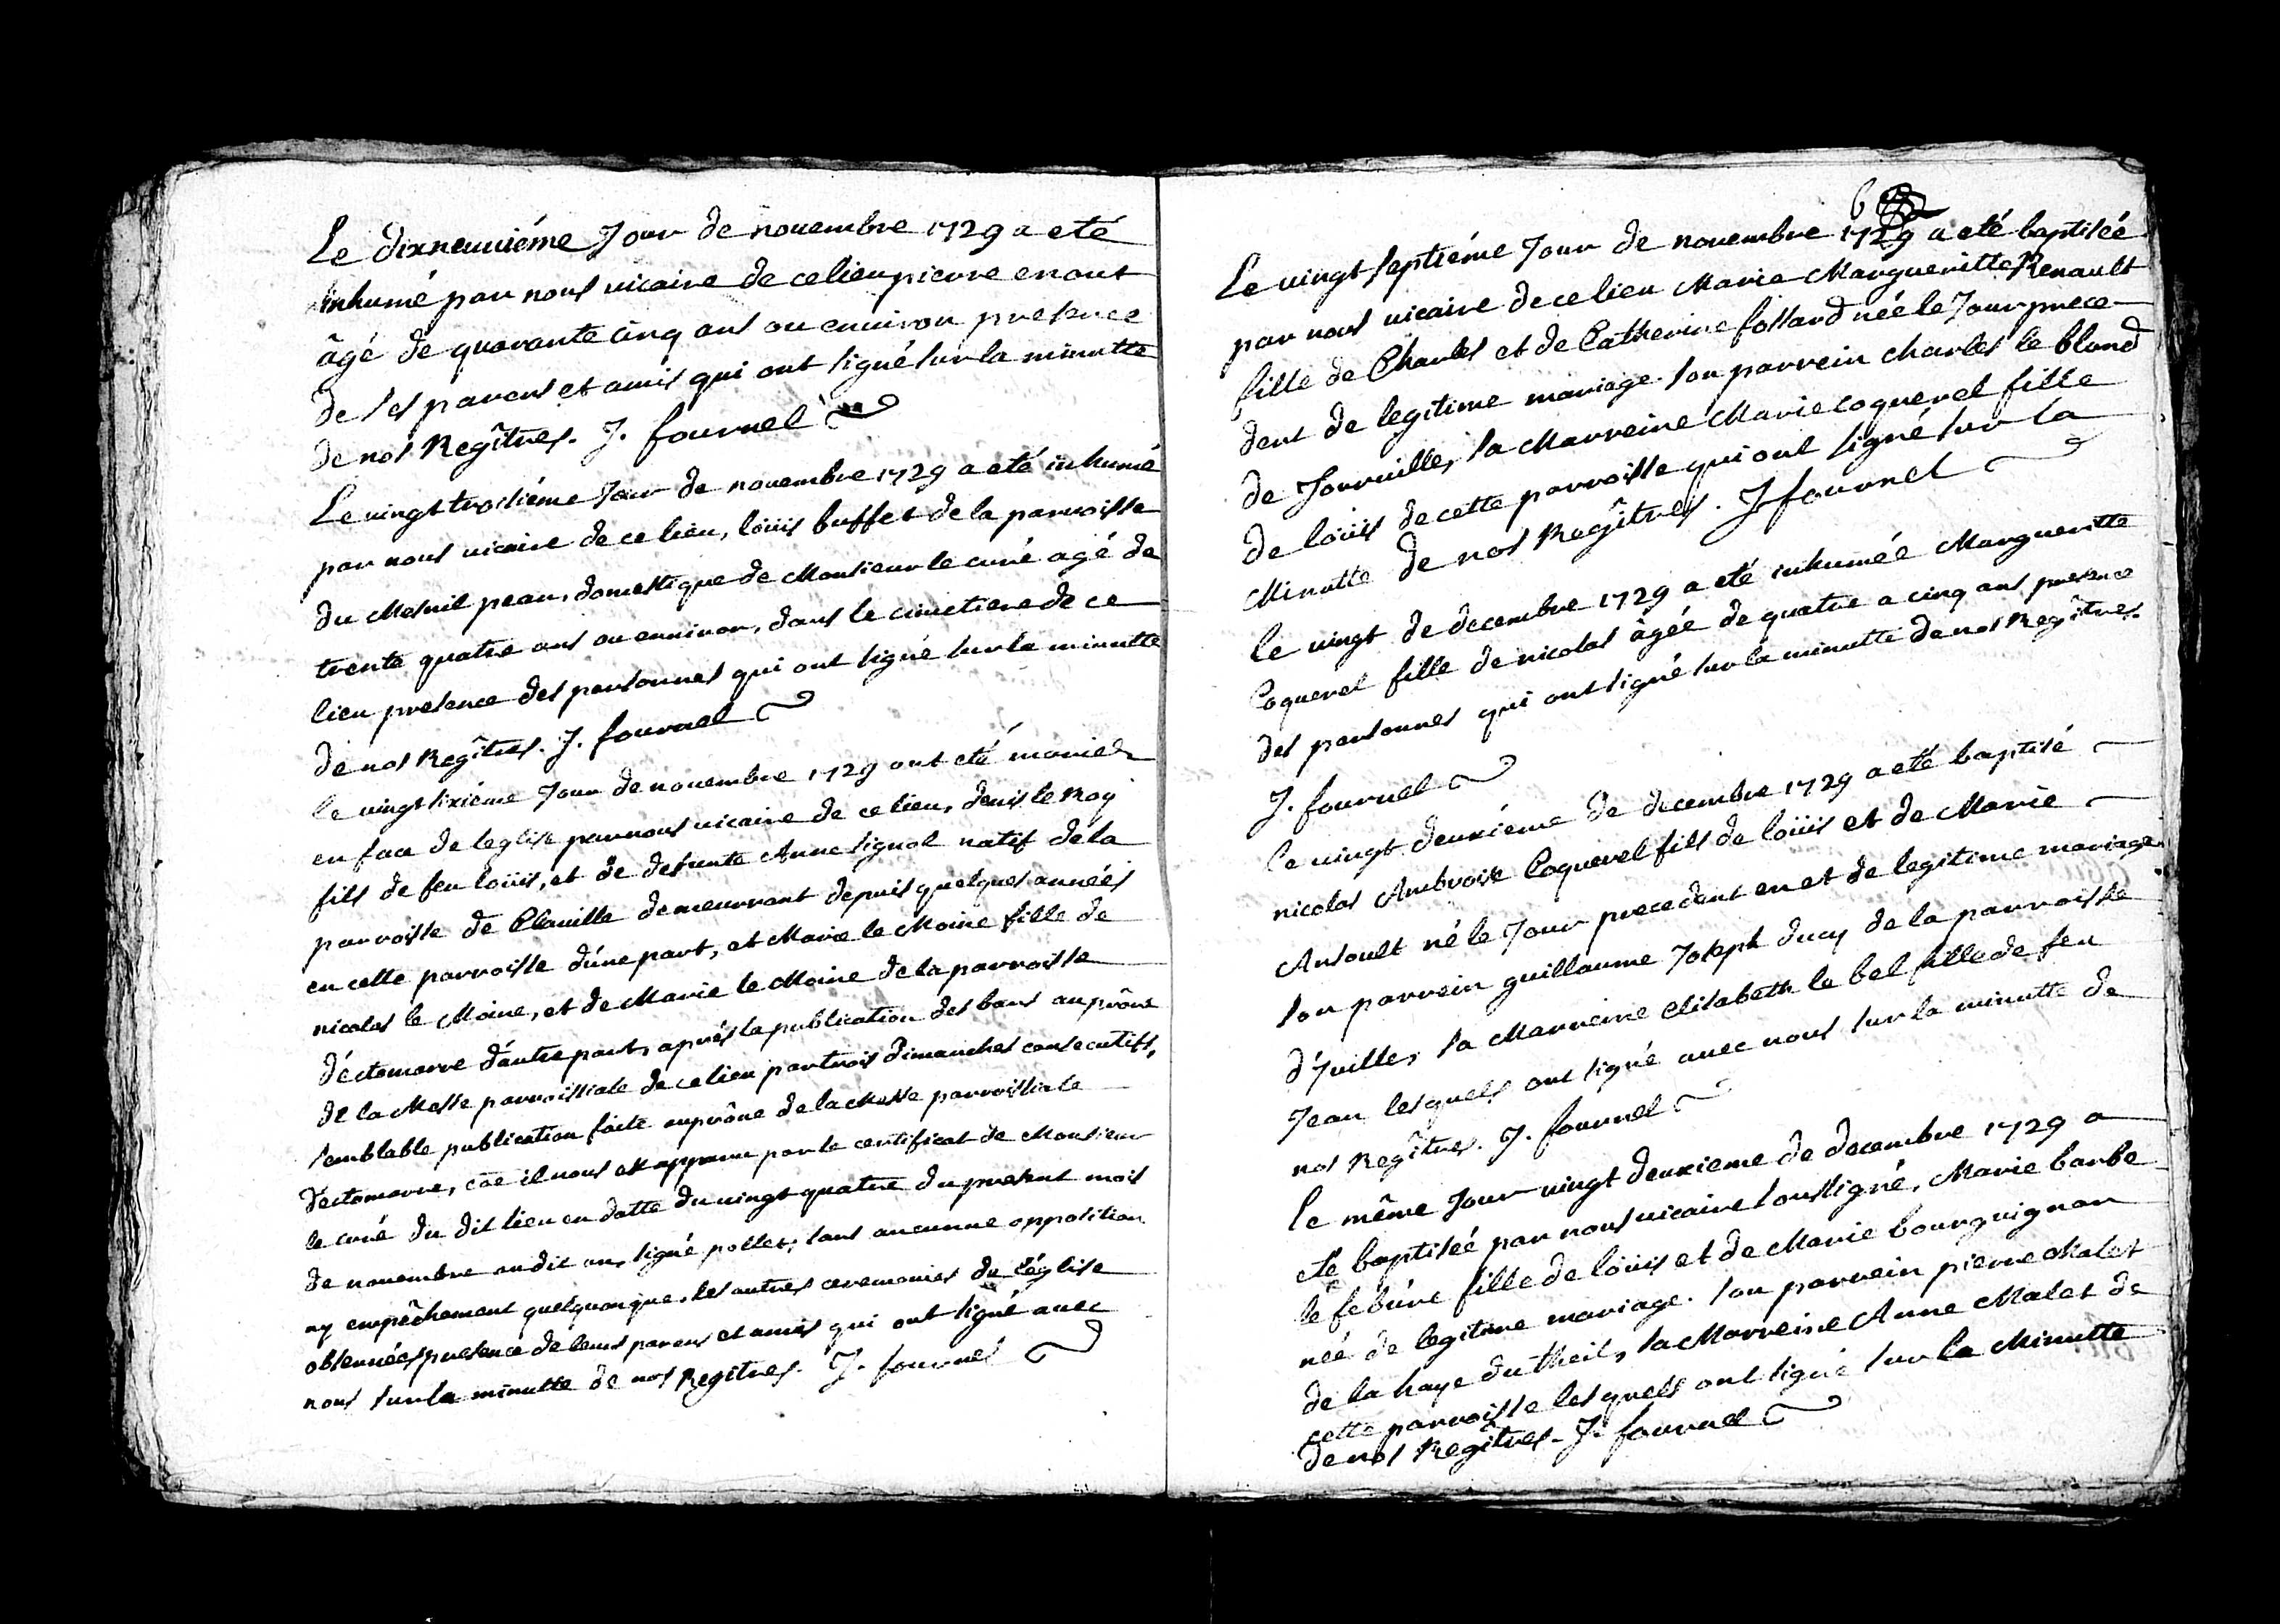 Le dixneuuiéme Jour de nouembre 1729 a eté
inhumé par nous uicaire de ce lieu pierre enout
âgé de quarante cinq ans ou enuiron presence
de ses parens et amis qui ont signé sur la minutte
de nos Regîtres. J. fournel
Le uingt troisiéme Jour de nouembre 1729 a eté inhumé
par nous uicaire de ce lieu, loüis buffet de la parroisse
du Mesnil pean, domestique de Monsieur le curé agé de
trente quatre ans ou enuiron, dans le cimetiere de ce
lieu presence des personnes qui ont signé sur la minutte
de nos Regîtres. J. fournel
le uingt sixiéme Jour de nouembre 1729 ont eté mariés
en face de leglise par nous uicaire de ce lieu, denis le Roy
fils de feu loüis, et de defunte Anne signol natif de la
parroisse de Clauille demeurrant depuis quelques années
en cette parroisse d'une part, et Marie le Moine fille de
nicolas le Moine, et de Marie le Moine de la parroisse
d'éctomarre d'autre part, aprés la publication des bans au prône
de la Messe parroissiale de ce lieu par trois dimanches consecutifs,
semblable publication faite au prône de la Messe parroissiale
dectomarre, cõe il nous est apparu par le certificat de Monsieur
le curé du dit lieu en datte du uingt quatre du present mois
de nouembre audit an, signé pollet, sans aucunne opposition
ny empêchement quelquonque, les autres ceremonies de l'église
obseruées presence de leurs parens et amis qui ont signé auec
nous sur la minutte de nos Regîtres. J. fournel
6
Le uingt septiéme Jour de nouembre 1729 a eté baptisée
par nous uicaire de ce lieu Marie Margueritte Renault
fille de Charles et de Catherine follard née le Jour prece-
dent de legitime mariage. son parrein charles le blond
de Jouuille, sa Marreine Marie Coquerel fille
de loüis de cette parroisse qui ont signé sur la
Minutte de nos Regîtres. J fournel
le uingt de decembre 1729 a eté inhumée Margueritte
Coquerel fille de nicolas âgée de quatre a cinq ans presence
des personnes qui ont signé sur la minutte de nos Regîtres.
J. fournel
le uingt deuxiéme de decembre 1729 a eté baptisé
nicolas Ambroise Coquerel fils de loüis et de Marie
Ansoult né le Jour precedent en et de legitime mariage
son parrein guillaume Joseph ducy de la parroisse
d'Juille, sa Marreine elisabeth le bel fille de feu
Jean lesquels ont signé auec nous sur la minutte de
nos Regîtres. J. fournel
le même Jour uingt deuxieme de decembre 1729 a
eté baptisée par nous uicaire soussigné, Marie barbe
le febure fille de loüis et de Marie bourguignon
née de legitime mariage. son parrein pierre Malet
de la haye du theil, sa Marreine Anne Malet de
cette parroisse lesquels ont signé sur la Minutte
de nos Regîtres. J. fournel